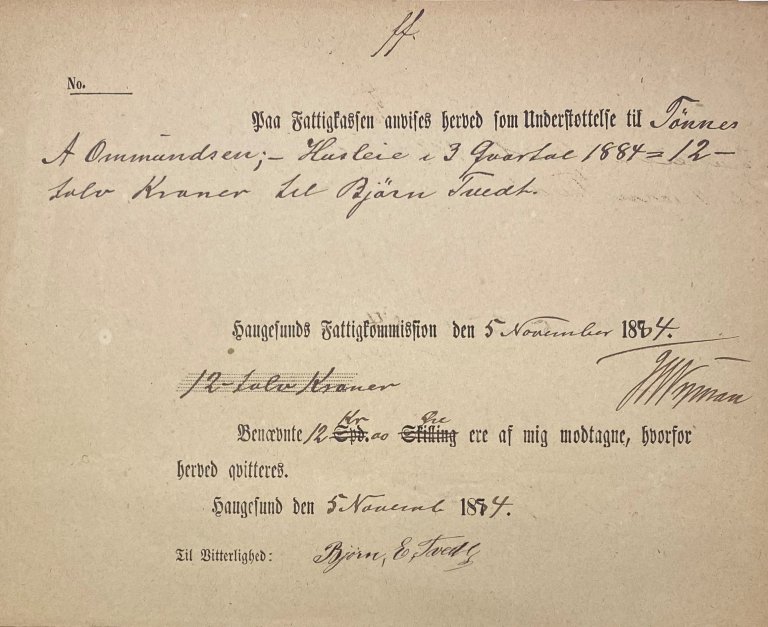 ff.
No.
Paa Fattigkassen anvises herved som Understøttelse til Tönnes
A Ommundsen;- Husleie i 3 Qvartal 1884 = 12-
tolv Kroner til Björn Tvedt.
Haugesunds Fattigkommission den 5 November 1884.
12- tolv Kroner
Kr Øre
Benævnte 12 Spd. 00 Skilling ere af mig modtagne, hvorfor
herved qvitteres.
Haugesund den 5 Novemb 1884.
Til Vitterlighed: Björn, E, Tvedt